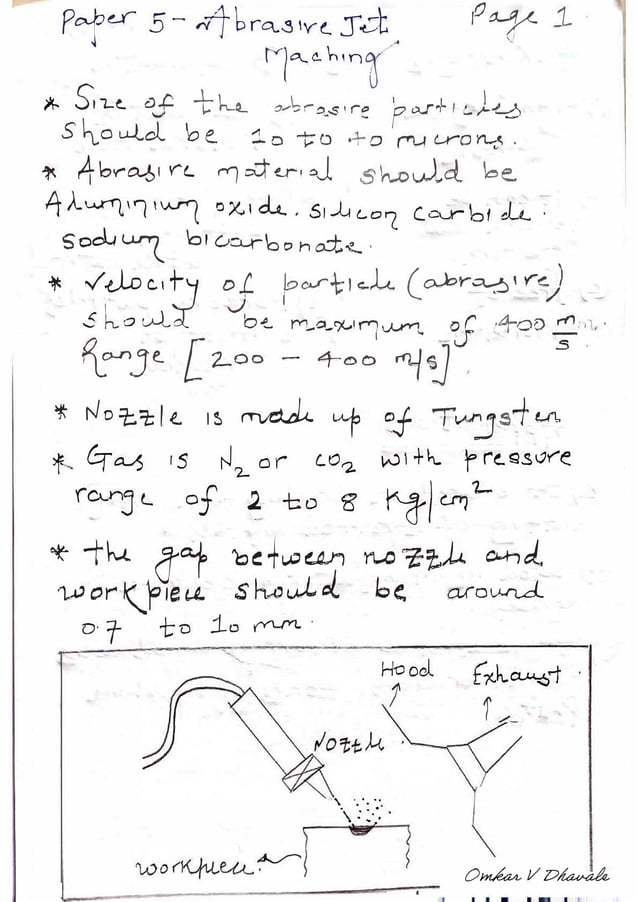 Paper 5 - Abrasive Jet
Page 1
Maching
* Size of the abrasive particles
should be 10 to 40 microns.
* Abrasive material should be
Aluminium oxide. silicon carbide.
sodium bicarbonate.
* Velocity of particle (abrasive)
should be maximum of 400 m/s
Range [200 - 400 m/s]
* Nozzle is made up of Tungsten
* Gas is N2 or CO2 with pressure
range of 2 to 8 kg/cm²
* the gap between nozzle and
workpiece should be around
0.7 to 10 mm.
Hood
Exhaust
Nozzle
workpiece
Omkar V Dhavale